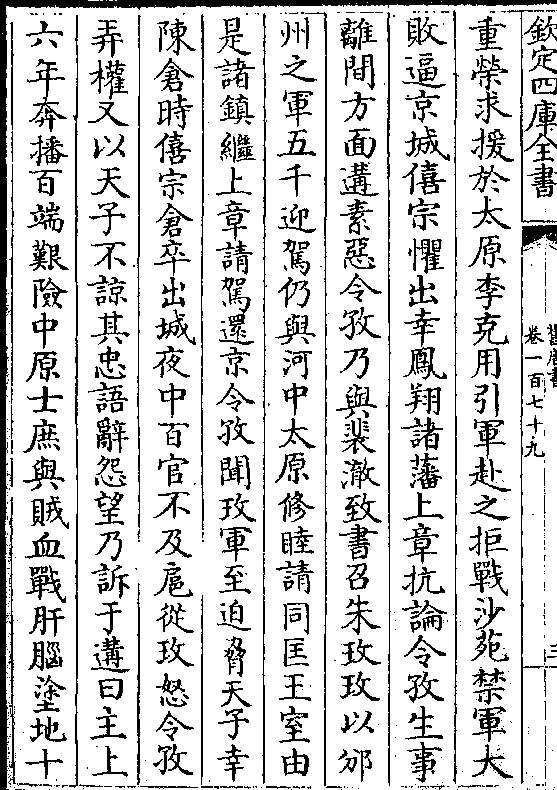 欽定四庫全書
舊唐書
卷一百七十九
三
重榮求援於太原李克用引軍赴之拒戰沙苑禁軍大
敗逼京城僖宗懼出幸鳳翔諸藩上章抗論令孜生事
離間方面遘素惡令孜乃與裴澈致書召朱玫玫以邠
州之軍五千迎駕仍與河中太原修睦請同匡王室由
是諸鎮繼上章請駕還京令孜聞玫軍至迫脅天子幸
陳倉時僖宗倉卒出城夜中百官不及扈從玫怒令孜
弄權又以天子不諒其忠語辭怨望乃訴于遘曰主上
六年奔播百端艱險中原士庶與賊血戰肝腦塗地十